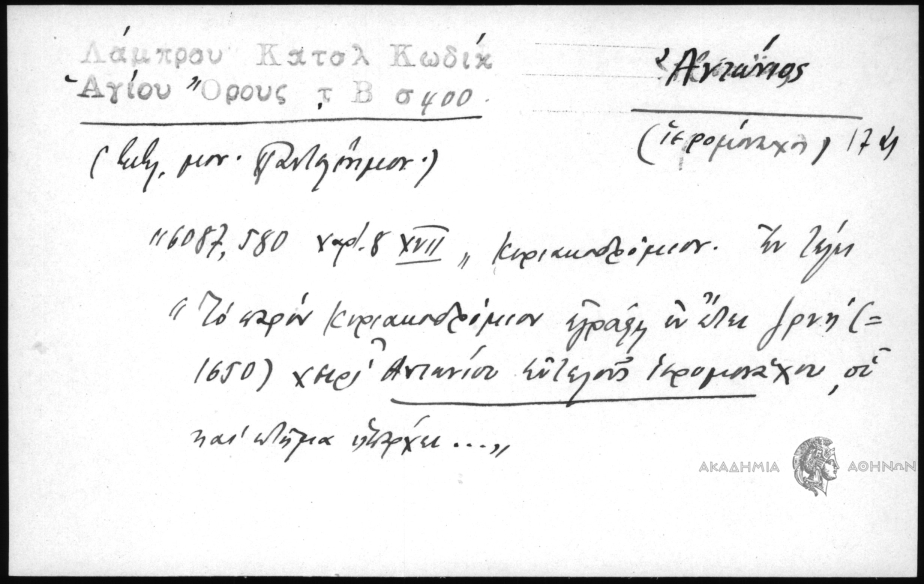 Λάμπρου Κατσλ Κωδίκ
Ἁγίου Ὄρους τ Β σ 400.
Ἀντώνιος
(ἱερομόναχος) 17 αἰ
(μον. Παντελεήμον.)
"6087, 580 χαρτ. 8 XVII „ Κυριακοδρόμιον. Ἐν τέλει
"Τό παρόν Κυριακοδρόμιον ἐγράφη ἐν ἔτει ͵αχν (=
1650) χειρί Ἀντωνίου εὐτελοῦς ἱερομονάχου, οὗ
καί κτῆμα ὑπάρχει ...„
ΑΚΑΔΗΜΙΑ ΑΘΗΝΩΝ